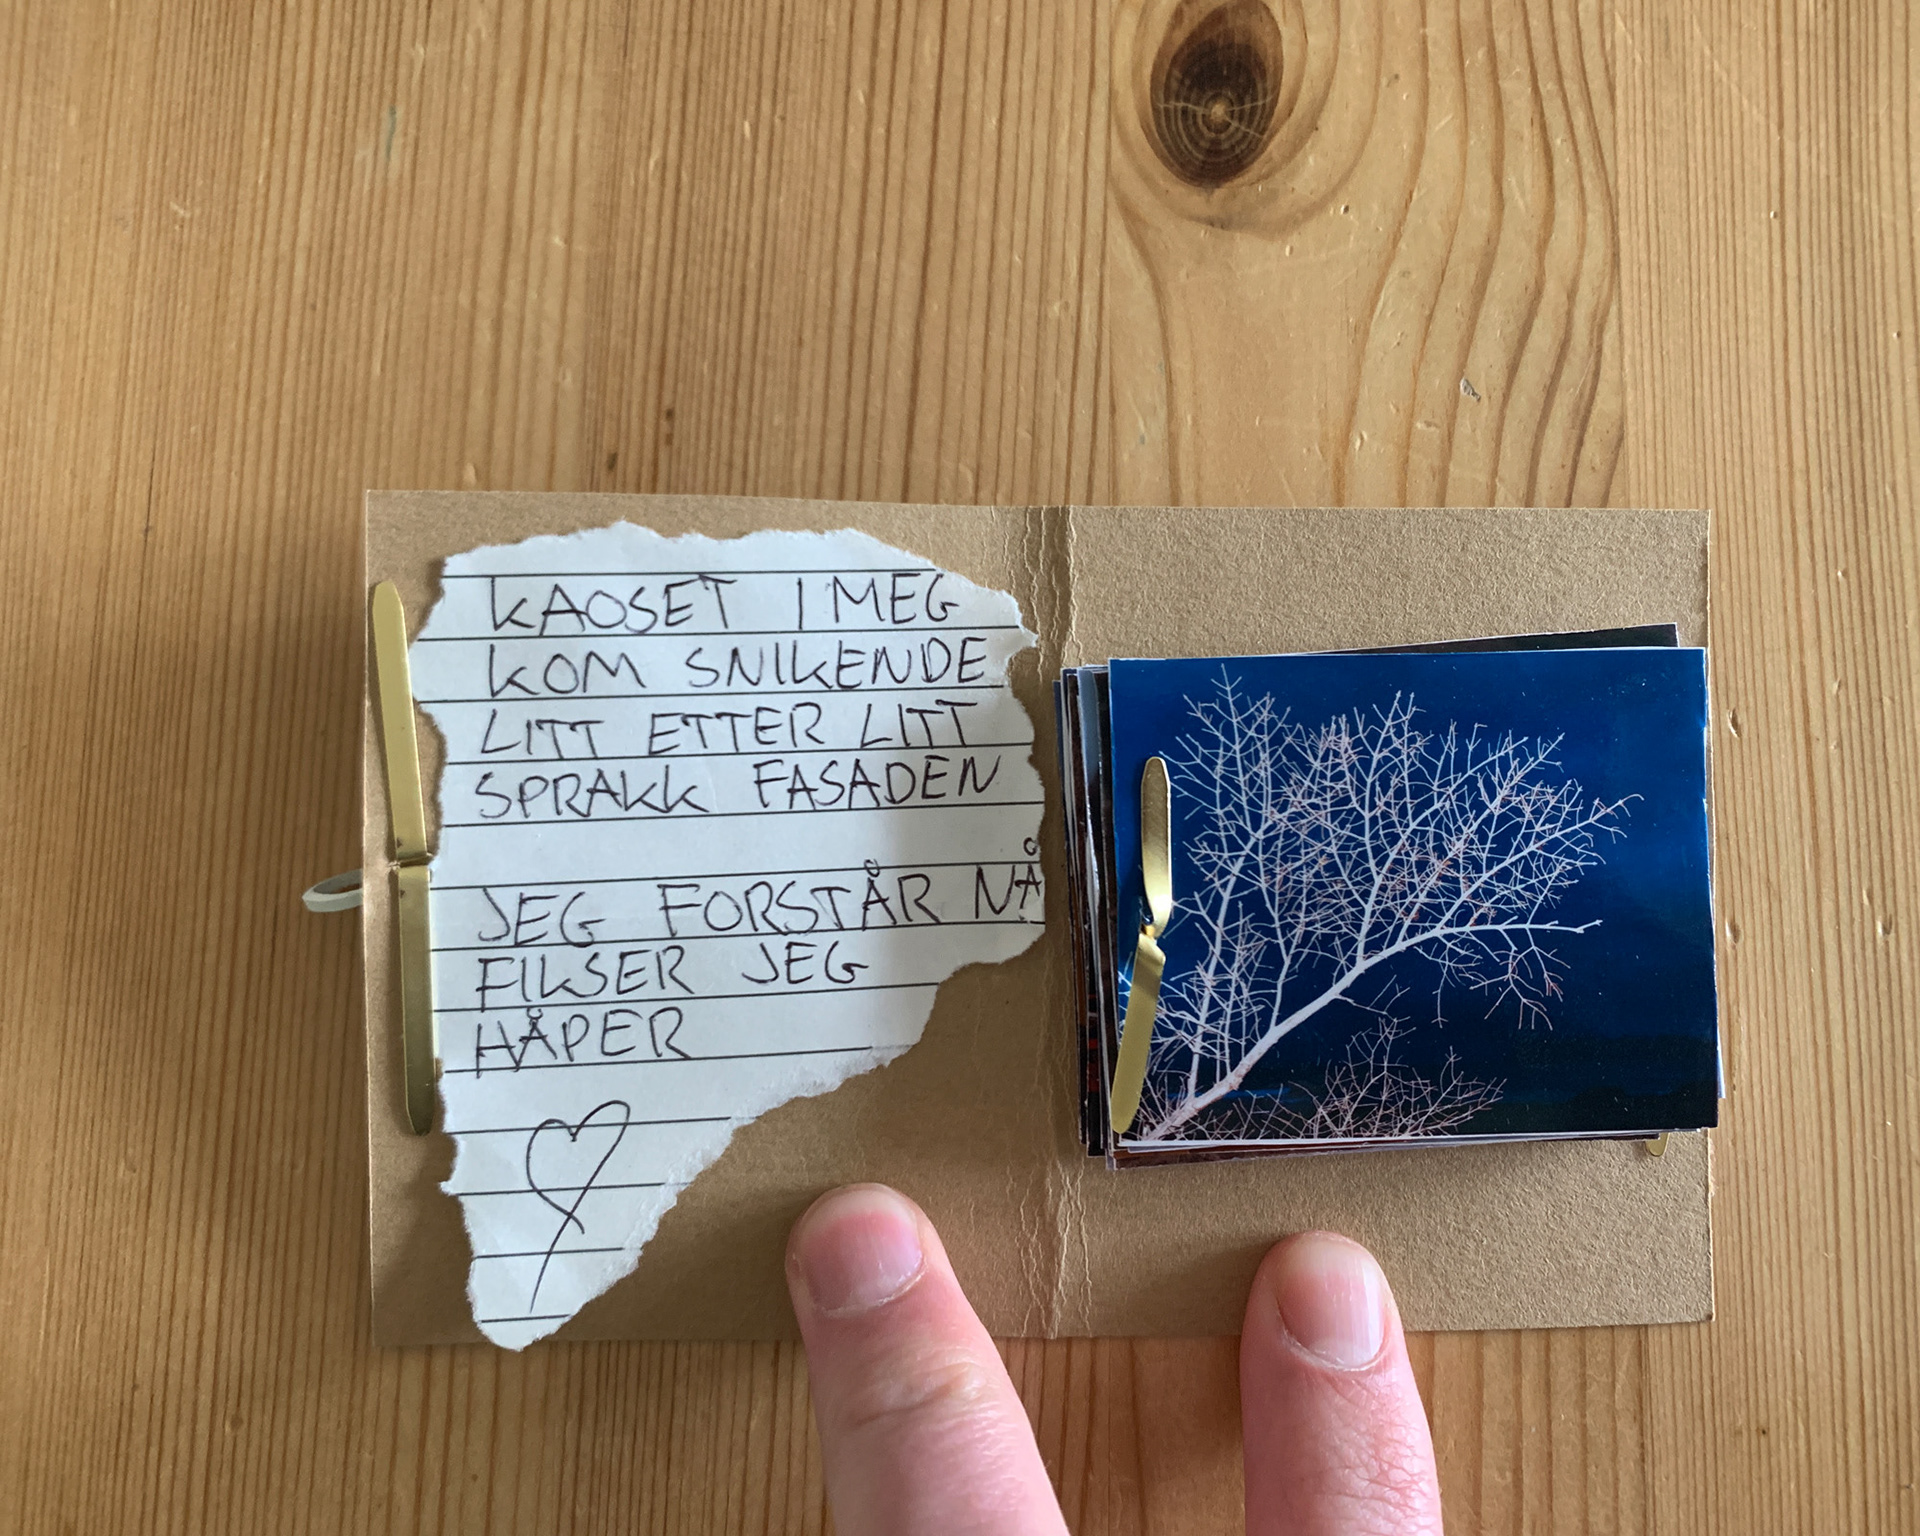 KAOSET I MEG
KOM SNIKENDE
LITT ETTER LITT
SPRAKK FASADEN
JEG FORSTÅR NÅ
FIKSER JEG
HÅPER